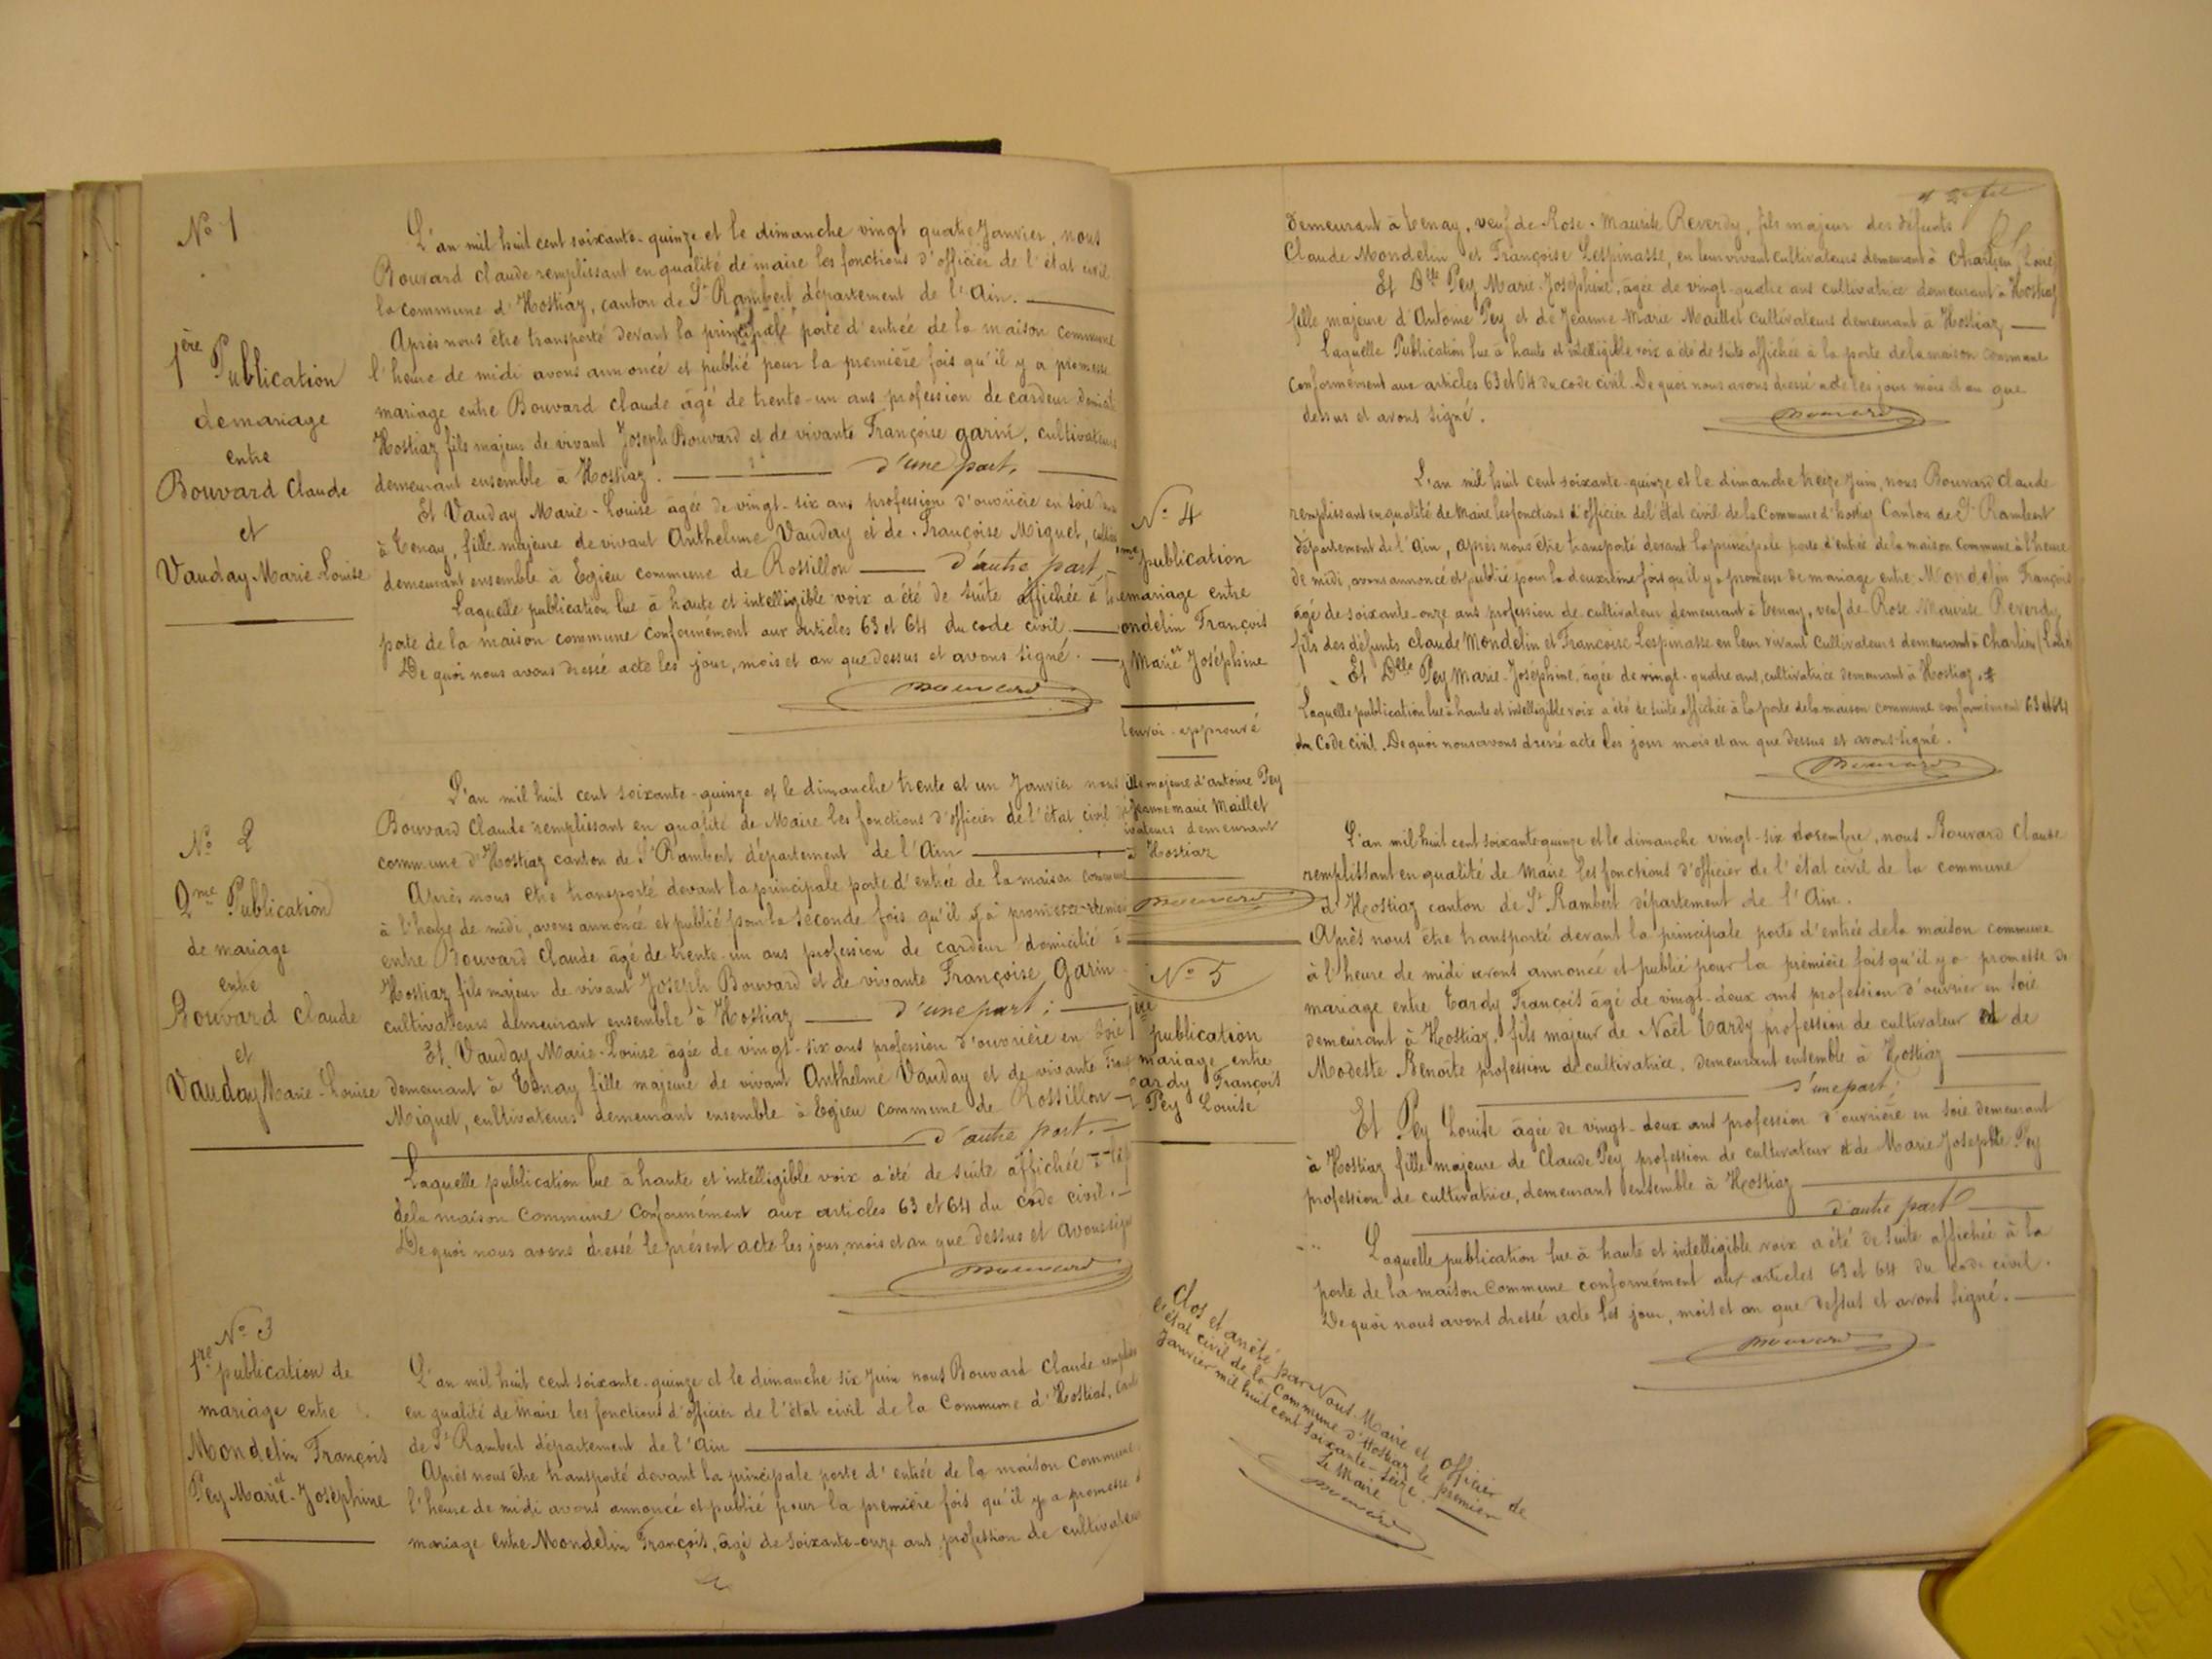 N° 1
1ère Publication
de mariage
entre
Bouvard Claude
et
Vauday Marie Louise
L'an mil huit cent soixante-quinze et le dimanche vingt quatre Janvier, nous
Bouvard Claude remplissant en qualité de maire les fonctions d'officier de l'état civil
la commune d'Hostiaz, canton de St Rambert département de l'Ain.
Après nous être transporté devant la principale porte d'entrée de la maison commune
l'heure de midi avons annoncé et publié pour la première fois qu'il y a promesse
mariage entre Bouvard Claude âgé de trente-un ans profession de cardeur
Hostiaz fils majeur de vivant Joseph Bouvard et de vivante Françoise Garin, cultivateurs
demeurant ensemble à Hostiaz. d'une part,
Et Vauday Marie-Louise âgée de vingt-six ans profession d'ouvrière en soie
à Tenay, fille majeure de vivant Anthelme Vauday et de Françoise Miguet,
demeurant ensemble à Egieu commune de Rossillon d'autre part
Laquelle publication lue à haute et intelligible voix a été de suite affichée à
porte de la maison commune conformément aux articles 63 et 64 du code civil
De quoi nous avons dressé acte les jour, mois et an que dessus et avons signé.
Bouvard
N° 2
2me Publication
de mariage
entre
Bouvard Claude
et
Vauday Marie-Louise
L'an mil huit cent soixante-quinze et le dimanche trente et un Janvier nous
Bouvard Claude remplissant en qualité de Maire les fonctions d'officier de l'état civil
commune d'Hostiaz canton de St Rambert département de l'Ain
Après nous être transporté devant la principale porte d'entrée de la maison commune
à l'heure de midi, avons annoncé et publié pour la seconde fois qu'il y a promesse
entre Bouvard Claude âgé de trente-un ans profession de cardeur domicilié à
Hostiaz fils majeur de vivant Joseph Bouvard et de vivante Françoise Garin
cultivateurs demeurant ensemble à Hostiaz d'une part;
Et Vauday Marie-Louise âgée de vingt-six ans profession d'ouvrière en soie
demeurant à Tenay fille majeure de vivant Anthelme Vauday et de vivante
Miguet, cultivateurs demeurant ensemble à Egieu commune de Rossillon
d'autre part.
Laquelle publication lue à haute et intelligible voix a été de suite affichée
de la maison commune conformément aux articles 63 et 64 du code civil.
De quoi nous avons dressé le présent acte les jour, mois et an que dessus et avons
Bouvard
N° 3
1re publication de
mariage entre
Mondelin François
et
Pey Marie-Joséphine
L'an mil huit cent soixante-quinze et le dimanche six Juin nous Bouvard Claude
en qualité de Maire les fonctions d'officier de l'état civil de la Commune d'Hostiaz,
de St Rambert département de l'Ain
Après nous être transporté devant la principale porte d'entrée de la maison Commune
l'heure de midi avons annoncé et publié pour la première fois qu'il y a promesse
mariage entre Mondelin François, âgé de soixante-onze ans, profession de cultivateur
demeurant à Tenay, veuf de Rose-Maurise Reverdy, fils majeur des défunts
Claude Mondelin et Françoise Lespinasse, en leur vivant cultivateurs demeurant à Charlieu (Loire)
Et Dlle Pey Marie-Joséphine, âgée de vingt-quatre ans cultivatrice demeurant à Hostiaz
fille majeure d'Antoine Pey et de Jeanne-Marie Maillet cultivateurs demeurant à Hostiaz
Laquelle Publication lue à haute et intelligible voix a été de suite affichée à la porte de la maison commune
conformément aux articles 63 et 64 du code civil. De quoi nous avons dressé acte les jour mois et an que
dessus et avons signé.
Bouvard
N° 4
publication
mariage entre
ondelin François
et
Marie Joséphine
renvoi approuvé
ille majeure d'antoine Pey
Jeanne marie Maillet
ivateurs demeurant
à Hostiaz
Bouvard
L'an mil huit cent soixante-quinze et le dimanche treize Juin, nous Bouvard Claude
remplissant en qualité de Maire les fonctions d'officier de l'état civil de la Commune d'hostiaz Canton de St Rambert
département de l'Ain, Après nous être transporté devant la principale porte d'entrée de la maison Commune à l'heure
de midi, avons annoncé et publié pour la deuxième fois qu'il y a promesse de mariage entre Mondelin François
âgé de soixante-onze ans profession de cultivateur demeurant à Tenay, veuf de Rose Maurise Reverdy
fils des défunts Claude Mondelin et Françoise Lespinasse en leur vivant Cultivateurs demeurant à Charlieu (Loire)
Et Delle Pey Marie-Joséphine, âgée de vingt-quatre ans, cultivatrice demeurant à Hostiaz.
Laquelle publication lue à haute et intelligible voix a été de suite affichée à la porte de la maison commune conformément 63 et 64
du Code civil. De quoi nous avons dressé acte les jour mois et an que dessus et avons signé.
Bouvard
N° 5
1re publication
mariage entre
ardy François
Pey Louise
L'an mil huit cent soixante quinze et le dimanche vingt-six décembre, nous Bouvard Claude
remplissant en qualité de Maire les fonctions d'officier de l'état civil de la commune
d'Hostiaz canton de St Rambert département de l'Ain.
Après nous être transporté devant la principale porte d'entrée de la maison commune
à l'heure de midi avons annoncé et publié pour la première fois qu'il y a promesse de
mariage entre Tardy François âgé de vingt-deux ans profession d'ouvrier en soie
demeurant à Hostiaz, fils majeur de Noël Tardy profession de cultivateur et de
Modeste Benoîte profession de cultivatrice, demeurant ensemble à Hostiaz
d'une part;
Et Pey Louise âgée de vingt-deux ans profession d'ouvrière en soie demeurant
à Hostiaz fille majeure de Claude Pey profession de cultivateur et de Marie Josephte Pey
profession de cultivatrice, demeurant ensemble à Hostiaz
d'autre part
Laquelle publication lue à haute et intelligible voix a été de suite affichée à la
porte de la maison commune conformément aux articles 63 et 64 du code civil.
De quoi nous avons dressé acte les jour, mois et an que dessus et avons signé.
Bouvard
Clos et arrêté par Nous Maire et officier de
l'état civil de la Commune d'Hostiaz le premier
Janvier mil huit cent soixante-seize.
Le Maire
Bouvard